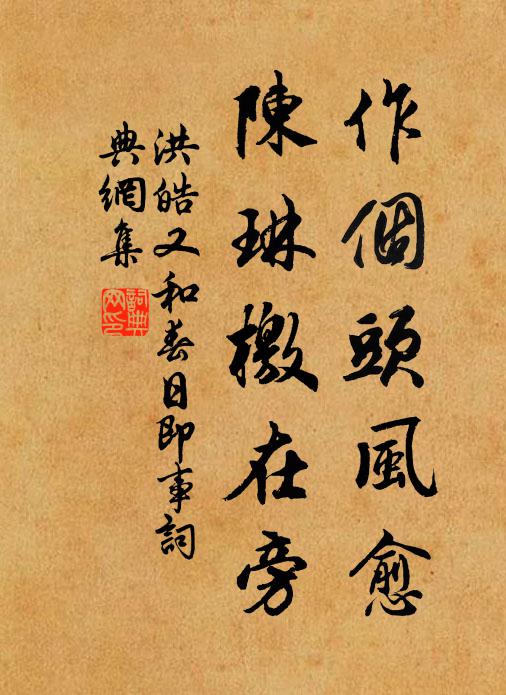 作個頭風愈
陳琳檄在旁
洪皓又和春日即事詞
典網集
詞典網印